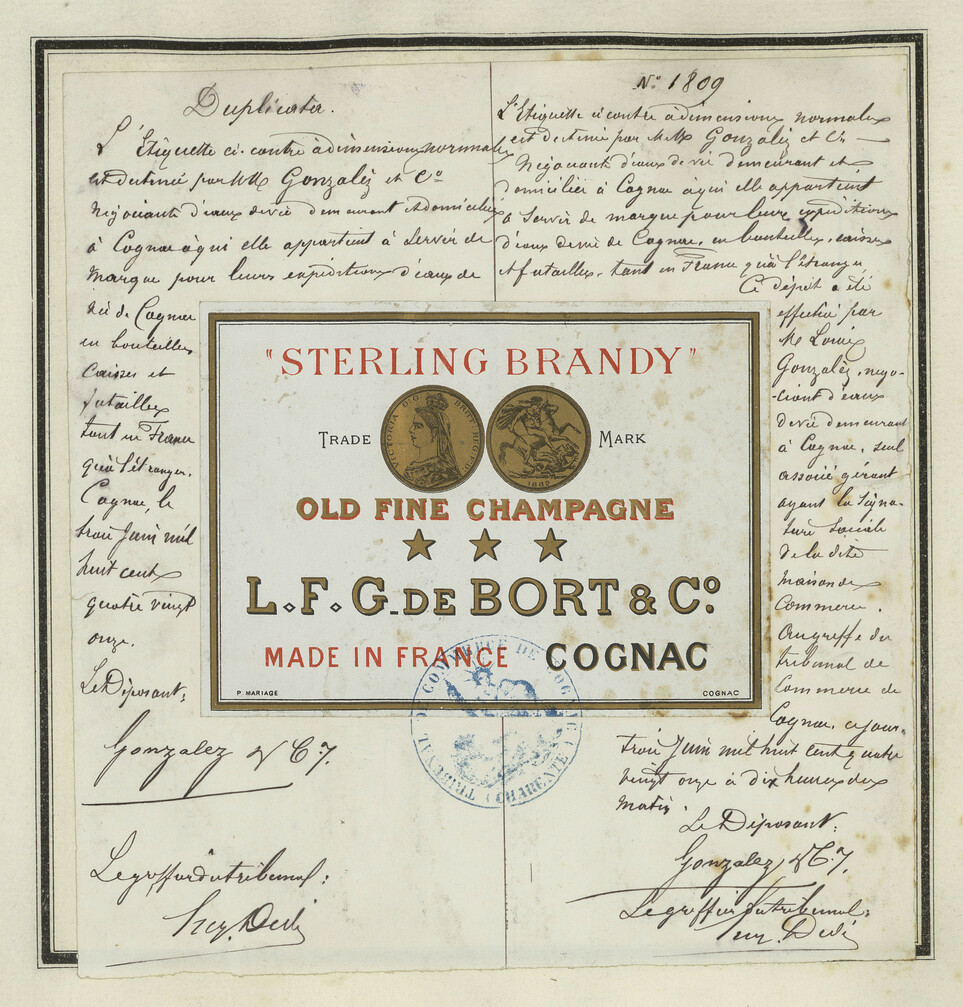 Duplicata.
L'Etiquette ci-contre à dimensions normales
est destinée par MM Gonzalèz et Cie
Négociants d'eaux de vie demeurant & domiciliés
à Cognac à qui elle appartient à servir de
Marque pour leurs expéditions d'eaux de
vie de Cognac
en bouteilles
Caisses et
futailles
tant en France
qu'à l'étranger.
Cognac, le
trois Juin mil
huit cent
quatre vingt
onze.
Le Déposant:
Gonzalez & C^y.
Le greffier du tribunal:
N° 1809
L'Etiquette ci contre à dimensions normales
est destinée par MM. Gonzalèz et Cie
Négociants d'eaux de vie demeurant et
domiciliés à Cognac à qui elle appartient
à servir de marque pour leurs expéditions
d'eaux de vie de Cognac, en bouteilles, caisses
et futailles, tant en France qu'à l'étranger
Ce dépôt a été
effectué par
M Louis
Gonzalèz, négo-
-ciant d'eaux
de vie demeurant
à Cognac, seul
associé gérant
ayant la signa-
ture sociale
de la dite
maison de
Commerce.
Au greffe du
tribunal de
Commerce de
Cognac, ce jour
trois Juin mil huit cent quatre
vingt onze à dix heures du
matin.
Le Déposant:
Gonzalez & C^y.
Le greffier du tribunal:
"STERLING BRANDY"
TRADE MARK
VICTORIA D:G: BRITT:REG:F:D:
OLD FINE CHAMPAGNE
L.F.G. DE BORT & Co.
MADE IN FRANCE COGNAC
P. MARIAGE COGNAC
TRIBUNAL DE COMMERCE DE COGNAC (CHARENTE)